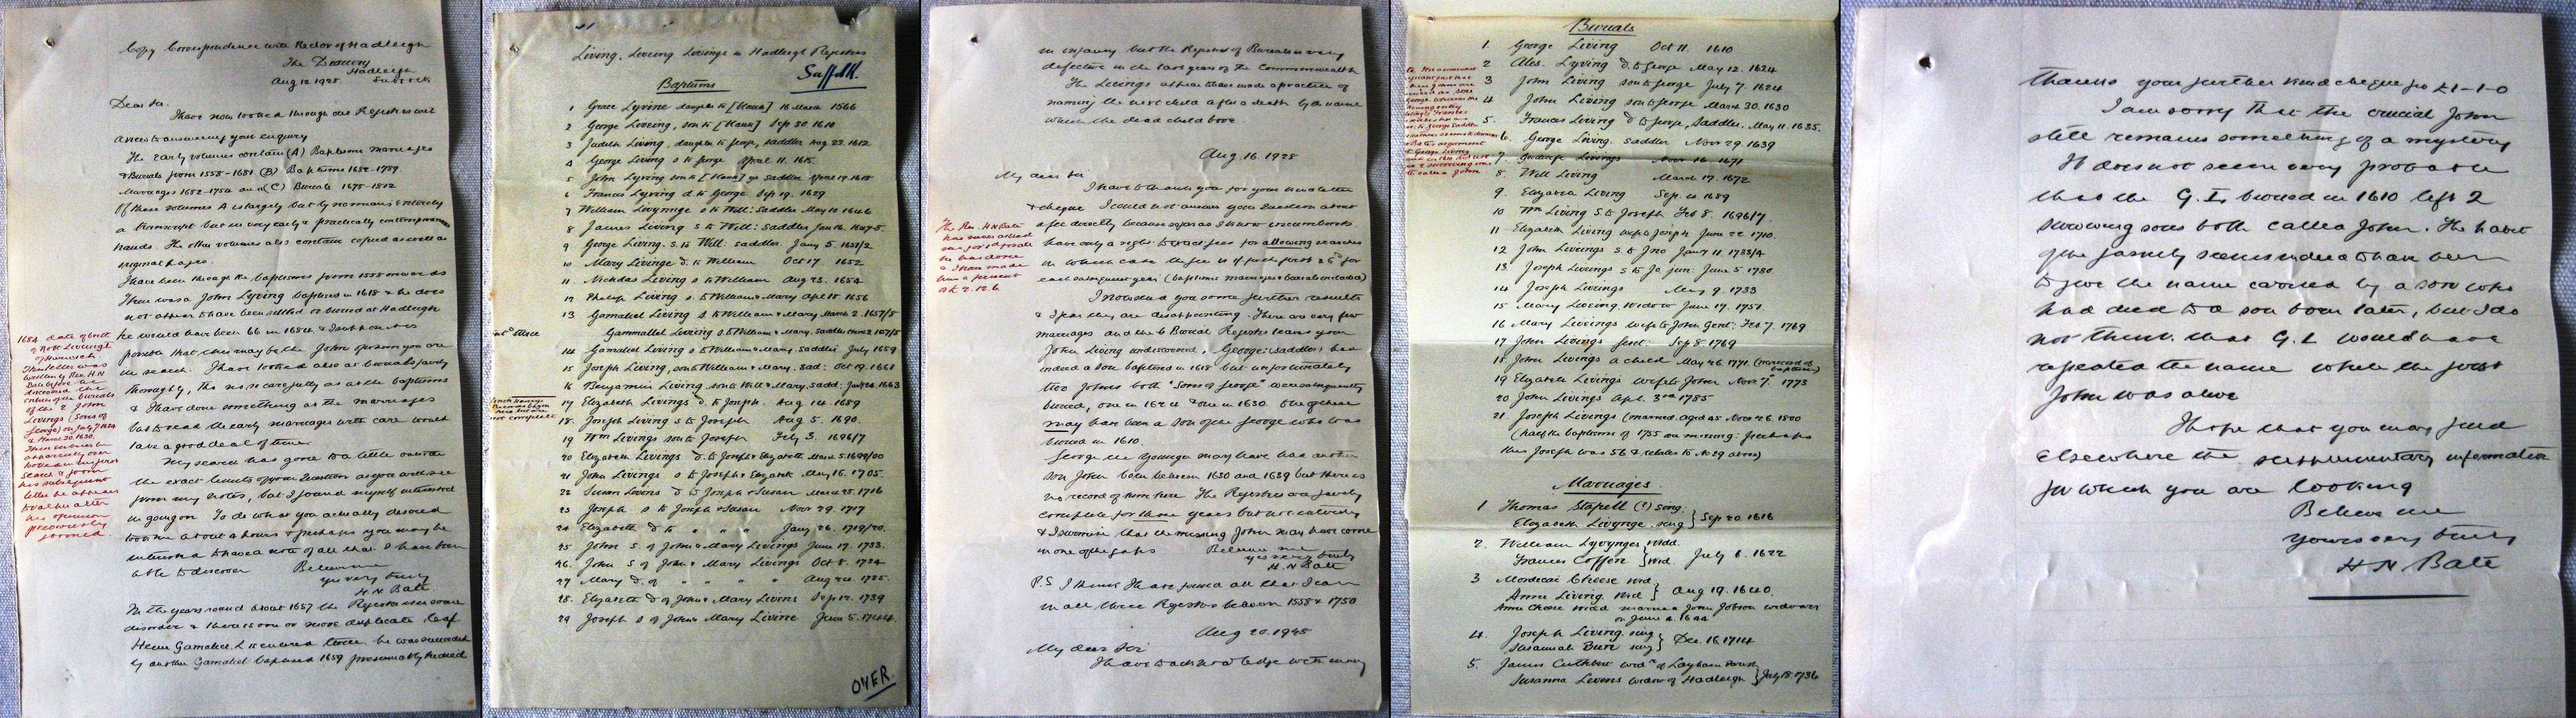 Copy Correspondence with Rector of Hadleigh
The Deanery
Hadleigh
Suffolk
Aug 12 1928.
Dear Sir.
I have now looked through our Registers with
a view to answering your enquiry
The early volumes contain (A) Baptisms marriages
& Burials from 1558-1681 (B) Baptisms 1682-1789
Marriages 1682-1754 and (C) Burials 1678-1812
Of these volumes A is largely but by no means entirely
a transcript but in very early & practically contemporaneous
hands. The other volumes also contain copied as well as
original pages.
I have been through the baptisms from 1558 onwards
There was a John Lyving baptised in 1618 & he does
not appear to have been settled or buried at Hadleigh
he would have been 66 in 1684 & I suppose it is
possible that this may be the John of whom you are
in search. I have looked also at burials fairly
thoroughly, tho not so carefully as at the baptisms
& I have done something at the marriages
but to read the early marriages with care would
take a good deal of time.
My search has gone to a little outside
the exact limits of your question as you will see
from my notes, but I found myself interested
in going on. To do what you actually desired
took me about 4 hours & perhaps you may be
interested to have a note of all that I have been
able to discover Believe me
yrs very truly
H. N Bate.
In the years round about 1657 the Registers are in some
disorder & there is one or more duplicate leaf
Hence Gamaliel L is entered twice. he was succeeded
by another Gamaliel baptised 1659 presumably he died
1684 date of birth
of Robt Livingh
of Norwich.
This letter was
written by Rev. H N
Bate before he
discovered the
entries of the burials
of the 2 John
Livings (Sons of
George) on July 7 1624
& March 30. 1630.
These entries he
apparently over
looked in his first
search & from
his subsequent
letter he appears
to rather alter
his opinion
previously
formed.
Living, Liveing Livings in Hadleigh Registers
Suffolk.
Baptisms
1 Grace Lyvine daughter to [blank] 16 March 1566
2 George Liveing, son to [blank] Sep 30 1610
3 Judeth Living, daughter to George, saddler Aug 23. 1612
4 George Living s to George April 11. 1615.
5 John Lyving son to [blank] ye saddler April 19. 1618
6 Francis Lyving d. to George Sep 19. 1629
7 William Livynnge s to Will: Saddler May 10 1646
8 James Living s to Will: Saddler Jan 16. 1647-8.
9 George Living. s. to Will: saddler. Jany 5. 1651/2
10 Mary Livinge d. to William Oct 17. 1652
11 Nicholas Living s to William Aug 23. 1654
12 Philip Living s. to William & Mary Apl 15 1656
13 Gamaliel Living s to William & Mary March 2. 1657/8
Gammaliel Living s. to William & Mary. Saddler March 2. 1657/8
14 Gamaliel Living s to William & Mary. Saddler July 1659
15 Joseph Living, son to William & Mary. Sad: Oct 19. 1661
16 Benjamin Living, son to Will & Mary. Sadd: 1663
17 Elizabeth Livings d. to Joseph. Aug 14. 1689
18 Joseph Living s to Joseph Aug 5. 1690.
19 Wm Livings son to Joseph Feby 3. 1696/7
20 Elizabeth Livings d. to Joseph & Elizabeth March 5. 1699/00
21 John Livings s to Joseph & Elizabeth May 16. 1705.
22 Susan Livens d to Joseph & Susan March 25. 1716
23 Joseph s to Joseph & Susan Nov 29. 1717
24 Elizabeth d to " " Jany 26. 1719/20.
25 John S. of John & Mary Livings June 17. 1733.
26. John S of John & Mary Livings Oct 8. 1734
27 Mary d. of " " " " Aug 1735.
28. Elizabeth d of John & Mary Livens Sep 12. 1739
29 Joseph s of John & Mary Livine June 5. 1744.
OVER.
in infancy but the Register of Burials is very
defective in the last years of the Commonwealth
The Livings at least have made a practice of
naming the next child after a death by the name
which the dead child bore.
Aug 16. 1928
My dear Sir
I have to thank you for your kind letter
& cheque I could not answer your question about
a fee directly because as far as I know incumbents
have only a right to exact fees for allowing searches
in which case the fee is 1/- for first & 6d for
each subsequent year (baptisms marriages & burials included)
I now send you some further results
& I fear they are disappointing. There are very few
marriages and the 6 Burial Register leaves your
John Living undiscovered, George: (saddler) had
indeed a son baptised in 1618 but unfortunately
two Johns both "sons of George" were subsequently
buried, one in 1624 & one in 1630. One of these
may have been a son of the George who was
buried in 1610.
George the younger may have had another
son John born between 1630 and 1639 but there is
no record of him here. The Registers are fairly
complete for these years but not entirely
& I surmise that the missing John may have come
in one of the gaps Believe me
yrs very truly
H. N Bate
P.S I think I have found all that I can
in all three Registers between 1558 & 1750
Aug 20. 1928
My dear Sir
I have to acknowledge with many
The Rev. H N Bate
has never asked
me for a fee for all
he has done
& I have made
him a present
of £2.12.6
Buruals
1. George Living Oct 11. 1610
2 Ales. Lyving d. to George May 12. 1624
3 John Living son to George July 7. 1624
4 John Living son to George March 30. 1630
5. Frances Living d to George, Saddler, May 11. 1635.
6. George Living. Saddler Nov 29. 1639
7. Livings Nov 16 1671
8. Will Living March 17. 1672
9. Elizabeth Living Sep. 10 1689
10 Wm Living S. to Joseph Feb 8. 1696/7.
11 Elizabeth Living wife to Joseph June 22 1710.
12 John Livings s. to Jno Jany 11 1733/4
13. Joseph Livings s to Jo jun: June 5 1730
14 Joseph Livings May 9. 1733
15 Mary Liveing. Widow June 17. 1751
16 Mary Livings wife to John Gent: Feb 7. 1769
17 John Livings Gent: Sep 8. 1769
18. John Livings a child May 26. 1771 (no record of baptism)
19 Elizabeth Livings wife to John Nov 7th 1773
20 John Livings Apl. 3rd 1785
21. Joseph Livings (married. aged 45 Nov 26. 1800
(half the baptisms of 1755 are missing: perhaps
this Joseph was 56 & relates to No 29 above)
Marriages
1 Thomas Stapell (?) sing:
Elizabeth Livynge. sing } Sep 20. 1616
2. William Lyvynges wid.
Frances Coffen wid } July 6. 1622
3 Mordecai Cheese wid
Anne Living. wid } Aug 19. 1640.
Anne Cheese wid married John Jobson widower
on June 4. 1644
4. Joseph Living sing
Susannah Burr sing } Dec. 16. 1714
5. James Cuthbert wid. of Layham
Susanna Livens widow of Hadleigh } July 18. 1736
thanks your further kind cheque for £1-1-0
I am sorry that the crucial John
still remains something of a mystery
It does not seem very probable
that the G. L. buried in 1610 left 2
surviving sons both called John. The habit
of the family seems indeed to have been
to give the name carried by a son who
had died to a son born later, but I do
not think that G. L would have
repeated the name while the first
John was alive
I hope that you may find
elsewhere the supplementary information
for which you are looking
Believe me
yours very truly
H N Bate